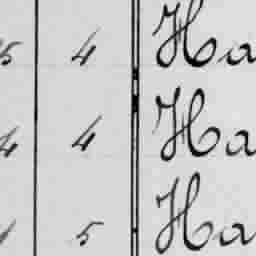 5 4 Ha
4 4 Ha
5 Ha